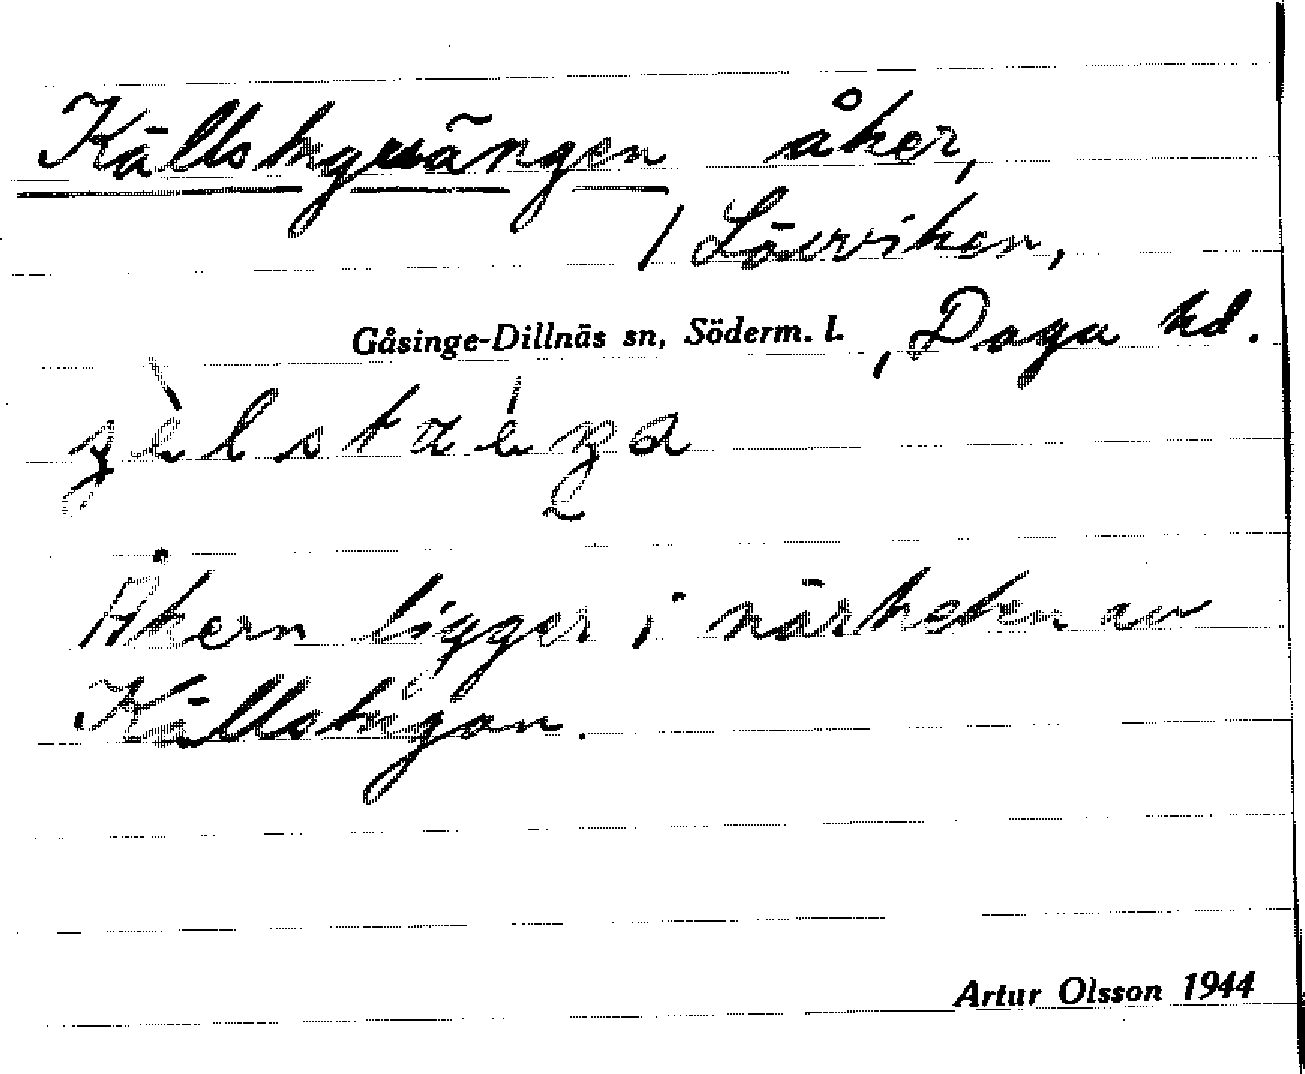 Källstuguängen åker,
/ Lövviken,
Gåsinge-Dillnäs sn, Söderm. l. , Daga hd.
Åkern ligger i närheten av
Källstugan.
Artur Olsson 1944